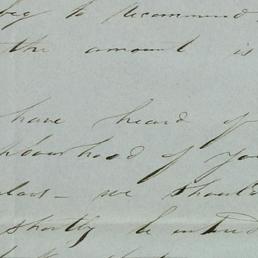 beg to recommend
the amount is
have heard of
hbourhood of you
we should
shortly be